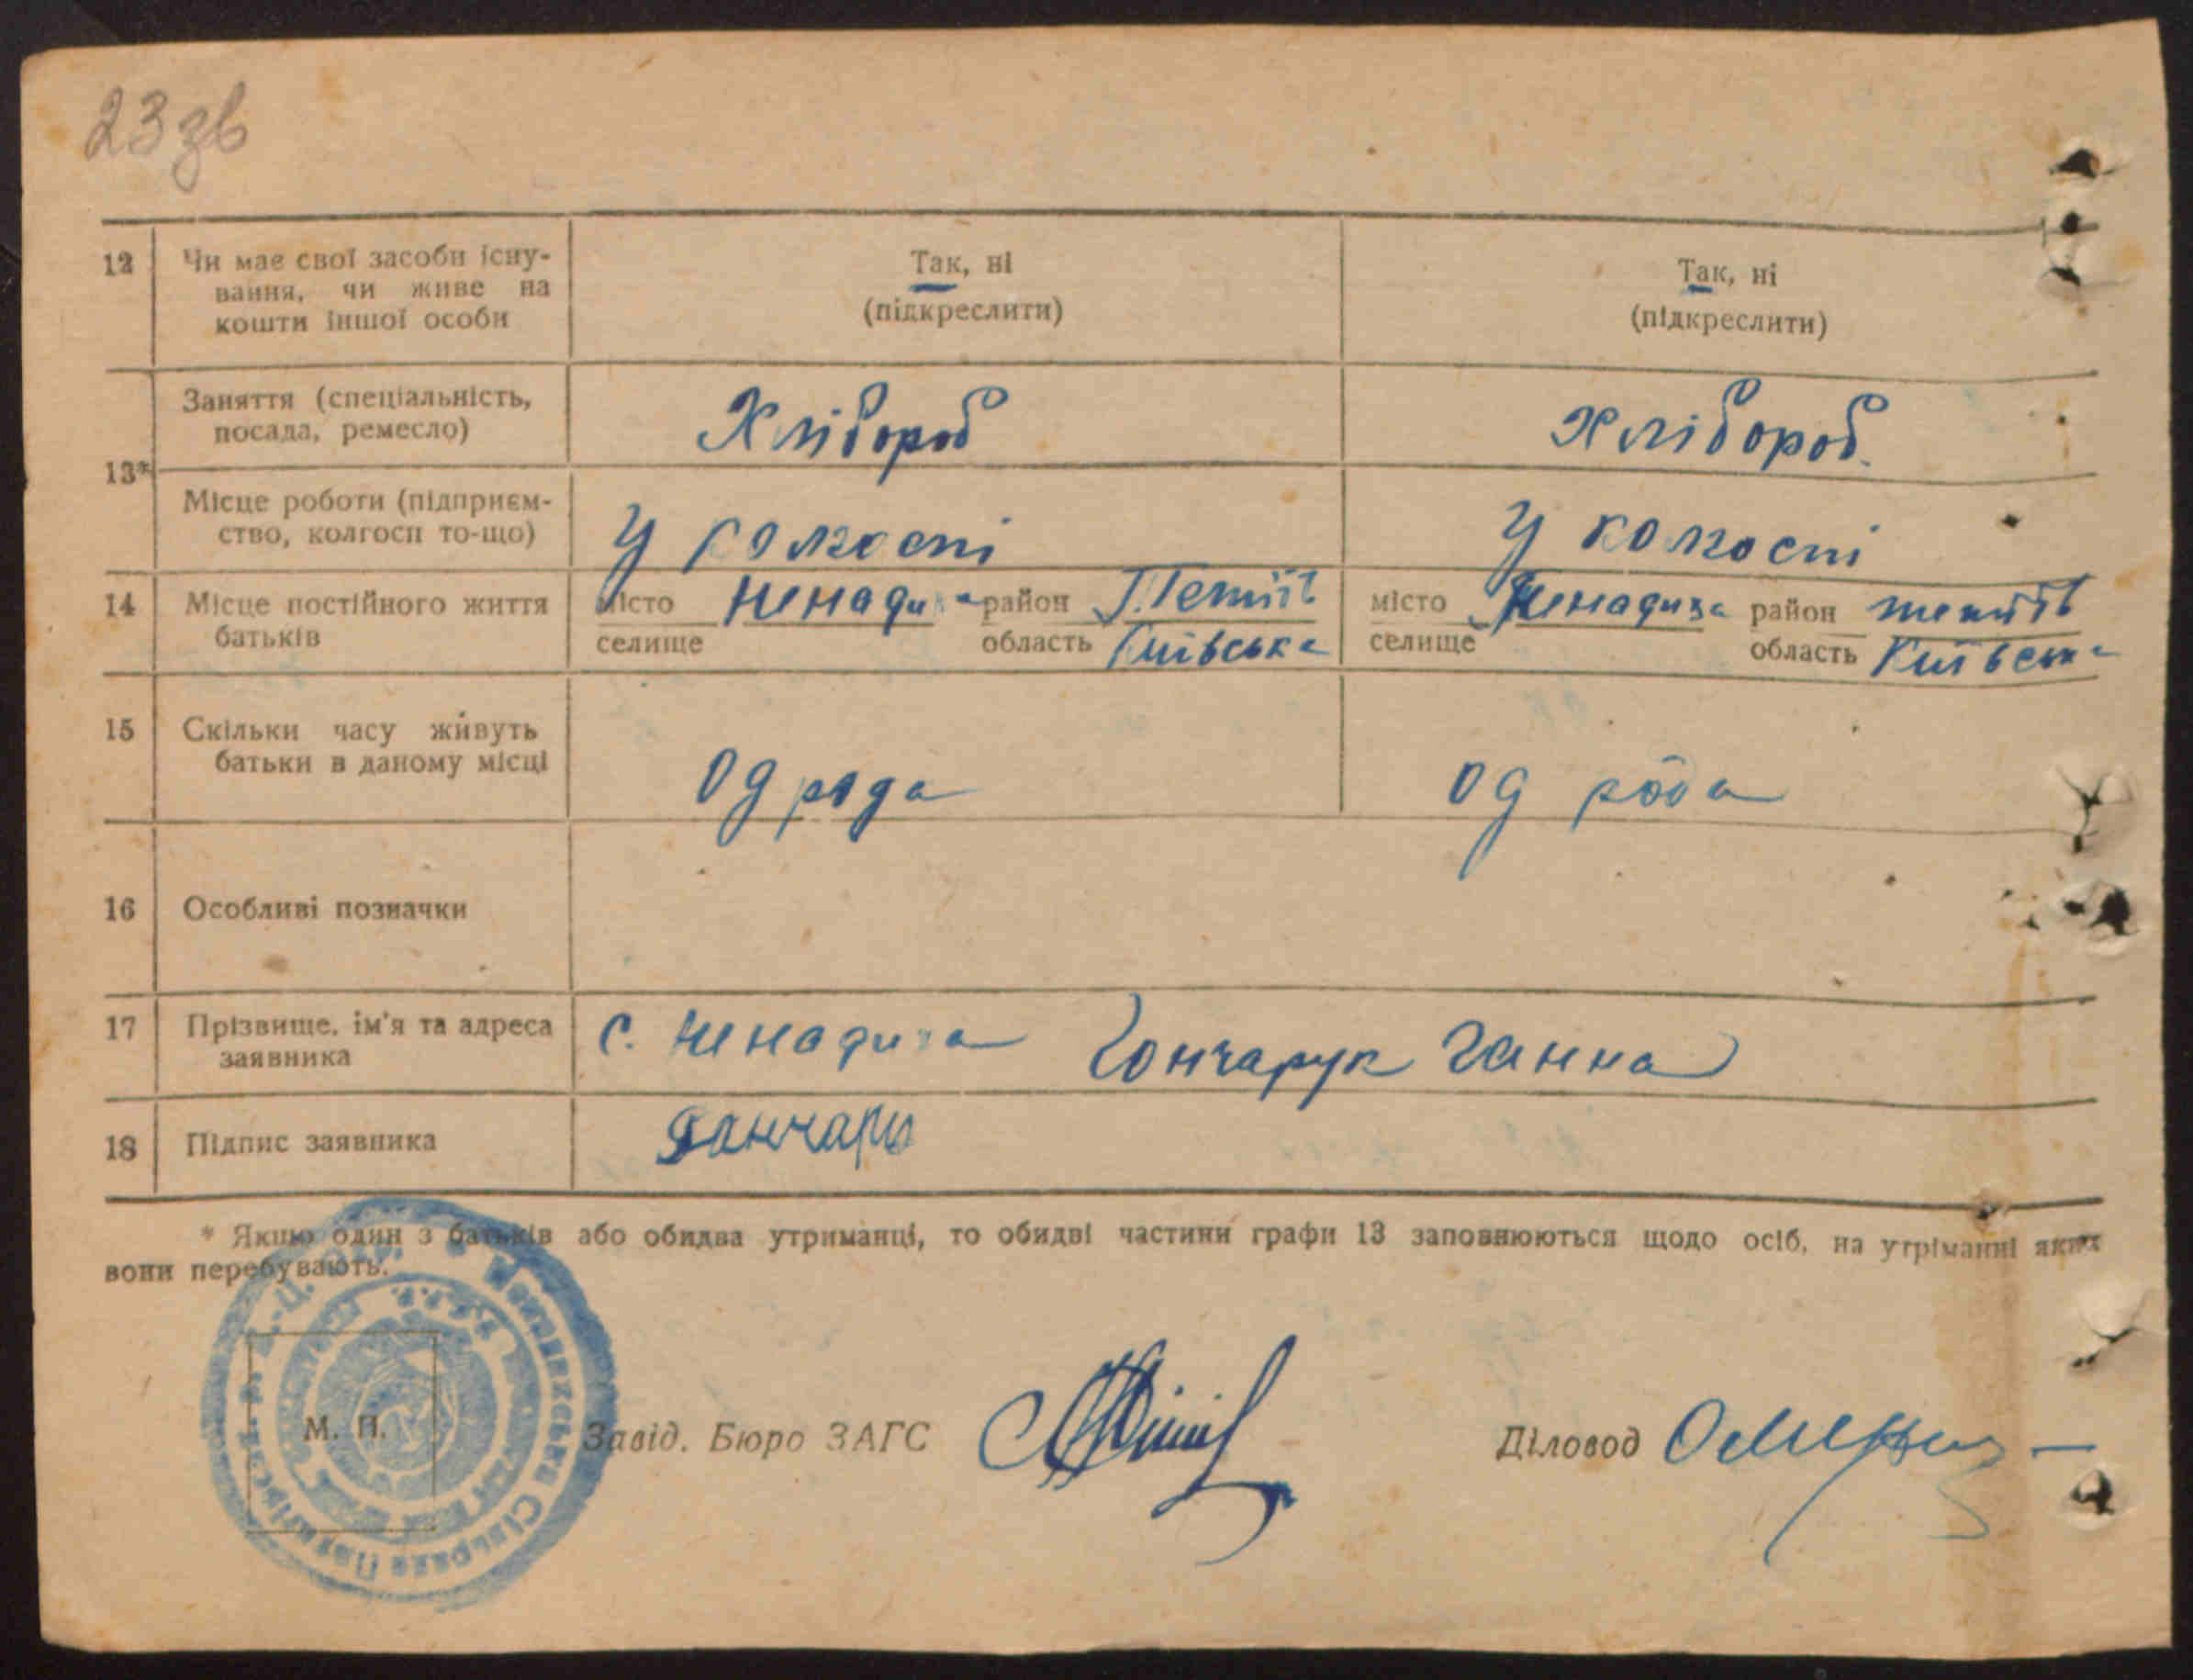 23 зв
12 Чи має свої засоби існу- Так, ні Так, ні
вання, чи живе на (підкреслити) (підкреслити)
кошти іншої особи
Заняття (спеціальність, Хлібороб Хлібороб.
посада, ремесло)
13*
Місце роботи (підприєм- У колгоспі У колгоспі
ство, колгосп то-що)
14 Місце постійного життя місто Ненадиха район Тетіїв місто Ненадиха район тетіїв
батьків селище область Київська селище область Київська
15 Скільки часу живуть
батьки в даному місці
Од рода од рода
16 Особливі позначки
17 Прізвище, ім'я та адреса с. Ненадиха Гончарук Ганна
заявника
18 Підпис заявника Ганчару
* Якщо один з батьків або обидва утриманці, то обидві частини графи 13 заповнюються щодо осіб, на утріманні яких
вони перебувають.
М. П.
Завід. Бюро ЗАГС
Діловод